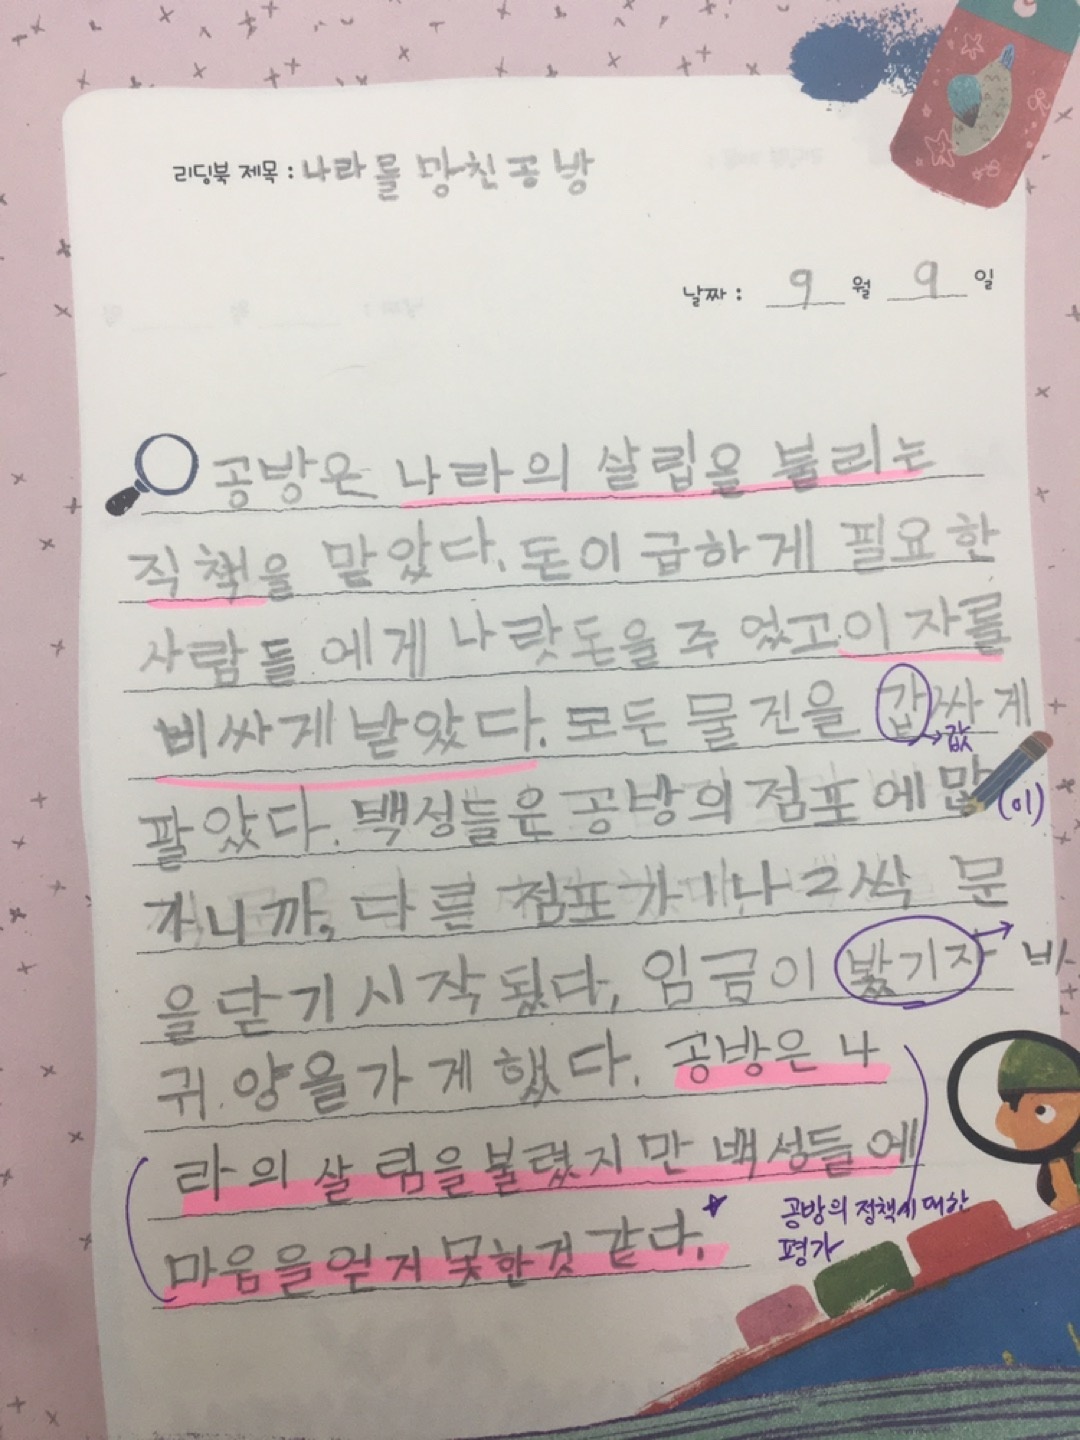 리딩북 제목 : 나라를 망친 공방
날짜 : 9 월 9 일
공방은 나라의 살림을 불리는
직책을 맡았다. 돈이 급하게 필요한
사람들 에게 나랏돈을 주 었고 이 자를
비싸게 받았다. 모든 물건을 갑싸게
→값
팔았다. 백성들은 공방의 점포에 많
(이)
가니까, 다른 점포가 1나 2싹 문
을 닫기 시작 됬다, 임금이 밨기자 → 바
귀양을가게 했다. 공방은 나
라의 살림을 불렸지만 백성들에
마음을 얻지 못한것 같다.
공방의 정책에 대한
평가